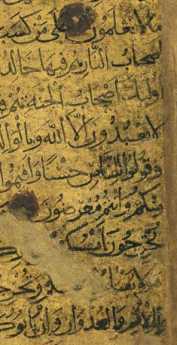 ما لا تعلمون بلى من كسب
اصحاب النار هم فيها خالد
اولئك اصحاب الجنة هم فيها
لا تعبدون الا الله وبالوالد
وقولوا للناس حسنا واقيموا
منكم وانتم معرضون
تخرجون انفسكم
وتخرجو
بالاثم والعدوان وان ياتوكم